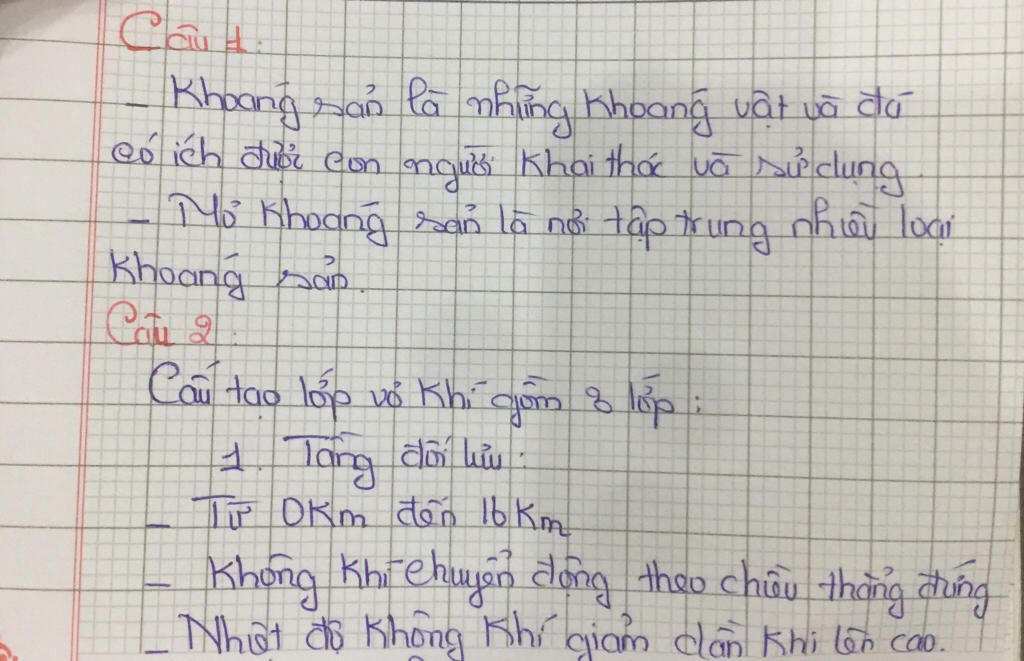 Câu 1:
- Khoáng sản là những khoáng vật và đá
có ích được con người khai thác và sử dụng.
- Mỏ khoáng sản là nơi tập trung nhiều loại
khoáng sản.
Câu 2:
Cấu tạo lớp vỏ khí gồm 3 lớp:
1. Tầng đối lưu:
- Từ 0Km đến 16Km
- Không khí chuyển động theo chiều thẳng đứng
- Nhiệt độ không khí giảm dần khi lên cao.